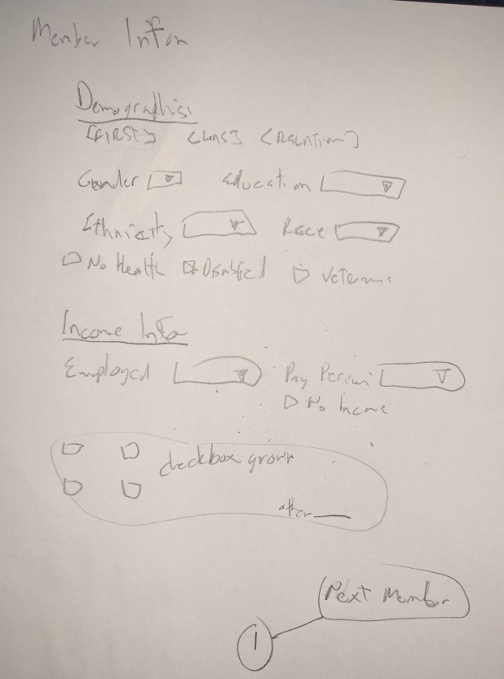 Member Infor
Demographics:
[FIRST] [LAST] [RELATION]
Gender Education
Ethnicity Race
No Health Disabled Veteran
Income Info
Employed Pay Period
No Income
checkbox group
other
Next Member
1